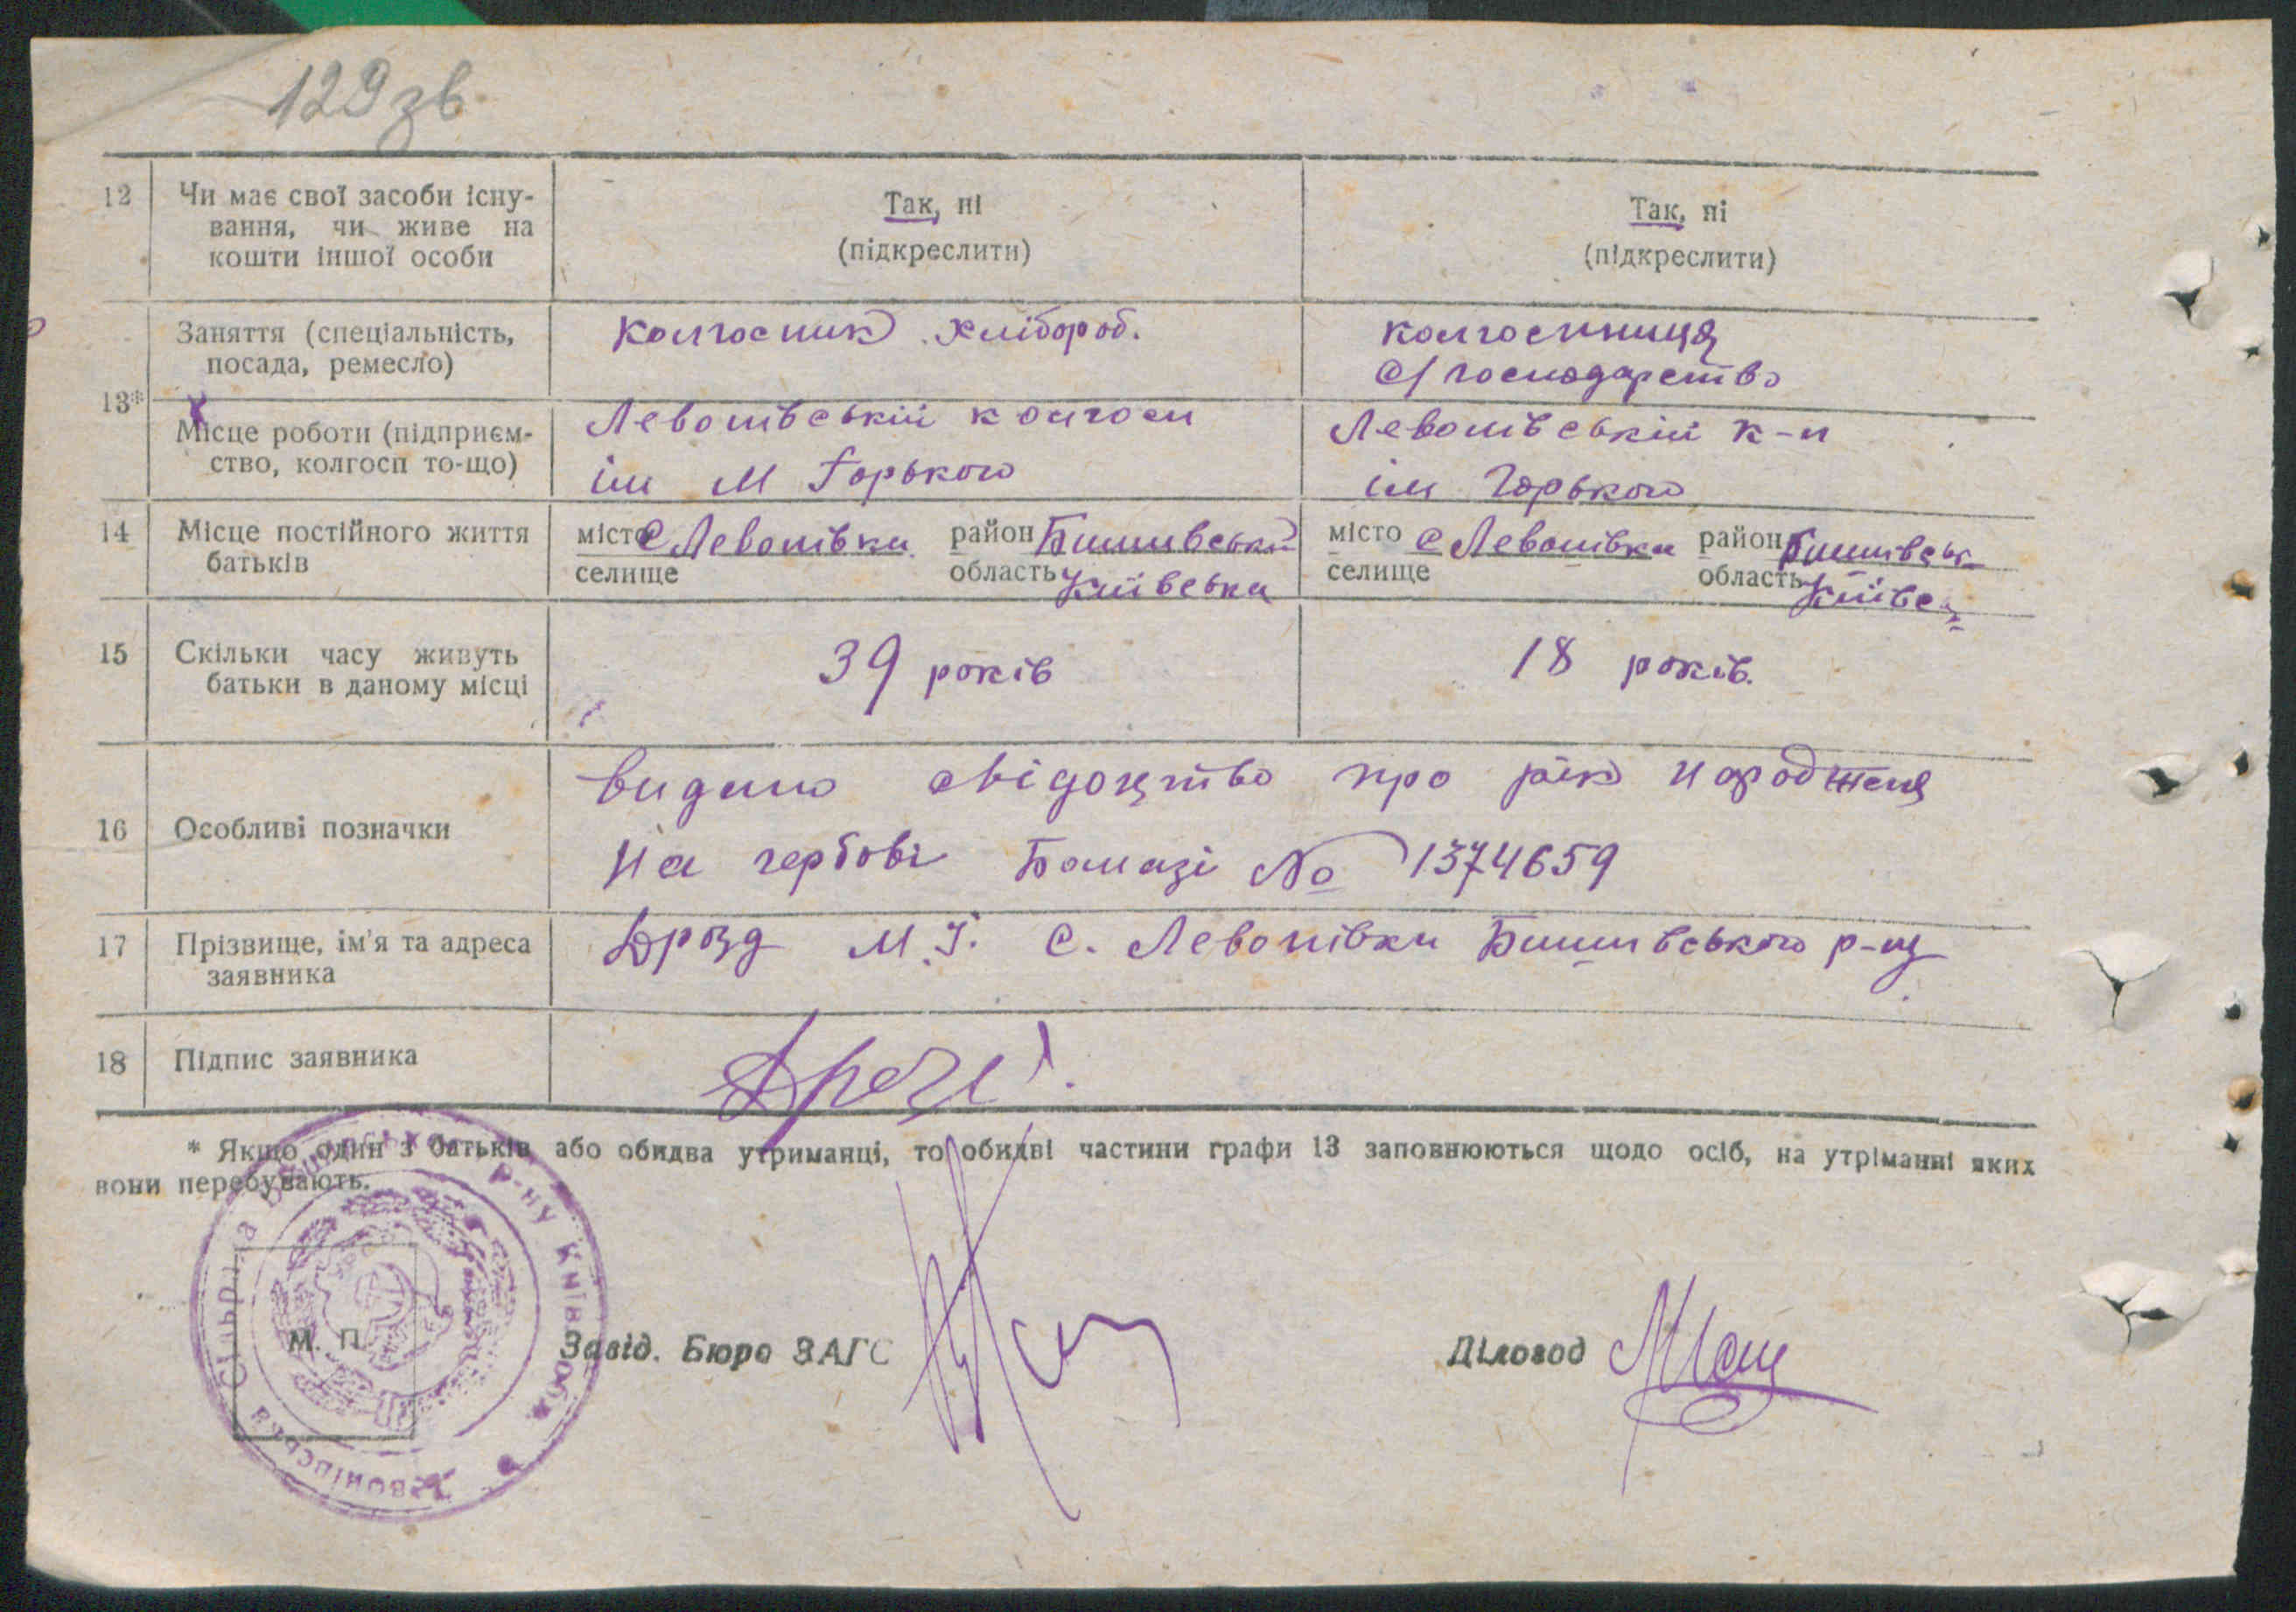 129зв
12 Чи має свої засоби існу-
вання, чи живе на
кошти іншої особи
Так, ні
(підкреслити)
Так, ні
(підкреслити)
13*
Заняття (спеціальність,
посада, ремесло)
колгоспник хлібороб.
колгоспниця
с/господарство
Місце роботи (підприєм-
ство, колгосп то-що)
Левонівській колгосп
ім М Горького
Левонівській к-п
ім Горького
14 Місце постійного життя
батьків
місто с Левонівка район Бишівській
селище область Київська
місто с Левонівка район Бишівськ
селище область Київсь
15 Скільки часу живуть
батьки в даному місці
39 років
18 років.
16 Особливі позначки
видано свідоцтво про рік народженя
На гербові Бомазі № 1374659
17 Прізвище, ім'я та адреса
заявника
Дрозд М.І. с. Левонівки Бишівського р-ну
18 Підпис заявника
* Якщо один з батьків або обидва утриманці, то обидві частини графи 13 заповнюються щодо осіб, на утріманні яких
вони перебувають.
М. П.
Завід. Бюро ЗАГС
Діловод